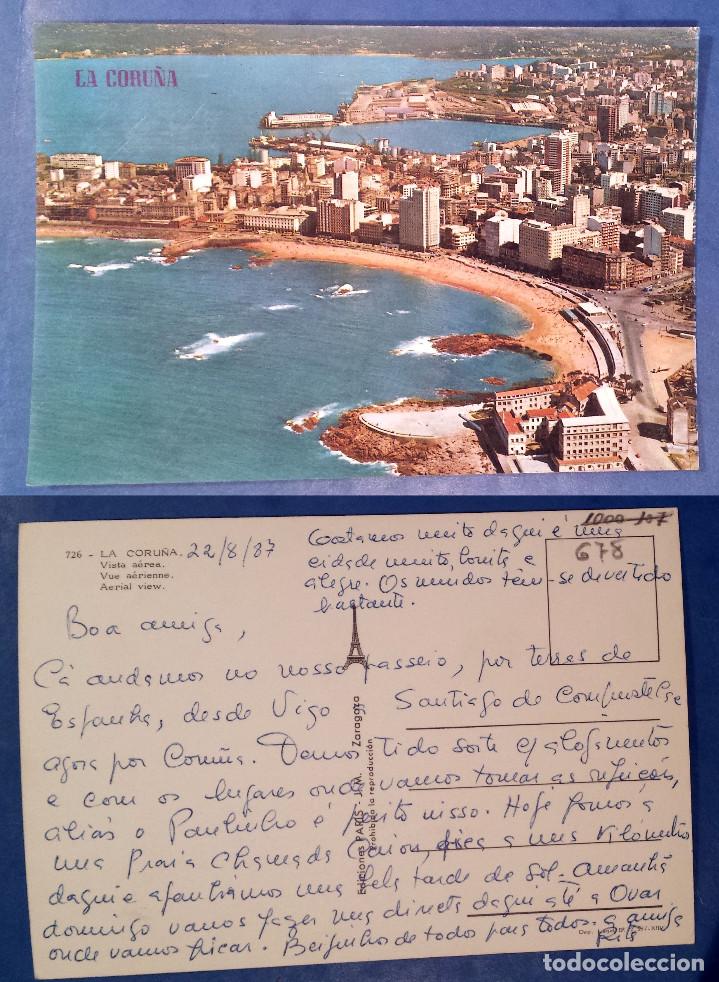 LA CORUÑA
726 - LA CORUÑA.
Vista aérea.
Vue aérienne.
Aerial view.
22/8/87
Gostamos muito daqui é uma
cidade muito bonita e
alegre. Os miudos têm-se divertido
bastante.
678
Boa amiga,
Cá andamos no nosso passeio, por terras de
Espanha, desde Vigo a Santiago de Compostela e
agora por Coruña. Temos tido sorte c/ alojamentos
e com os lugares onde vamos tomar as refeições,
aliás o Paulinho é perito nisso. Hoje fomos a
uma Praia chamada fica a uns Kilómetros
daqui e apanhámos uma bela tarde de sol. Amanhã
domingo vamos fazer uma directa daqui até a Ovar
onde vamos ficar. Beijinhos de todos para todos a amiga
Ediciones PARIS - J.M. Zaragoza
Prohibida la reproducción
todocoleccion